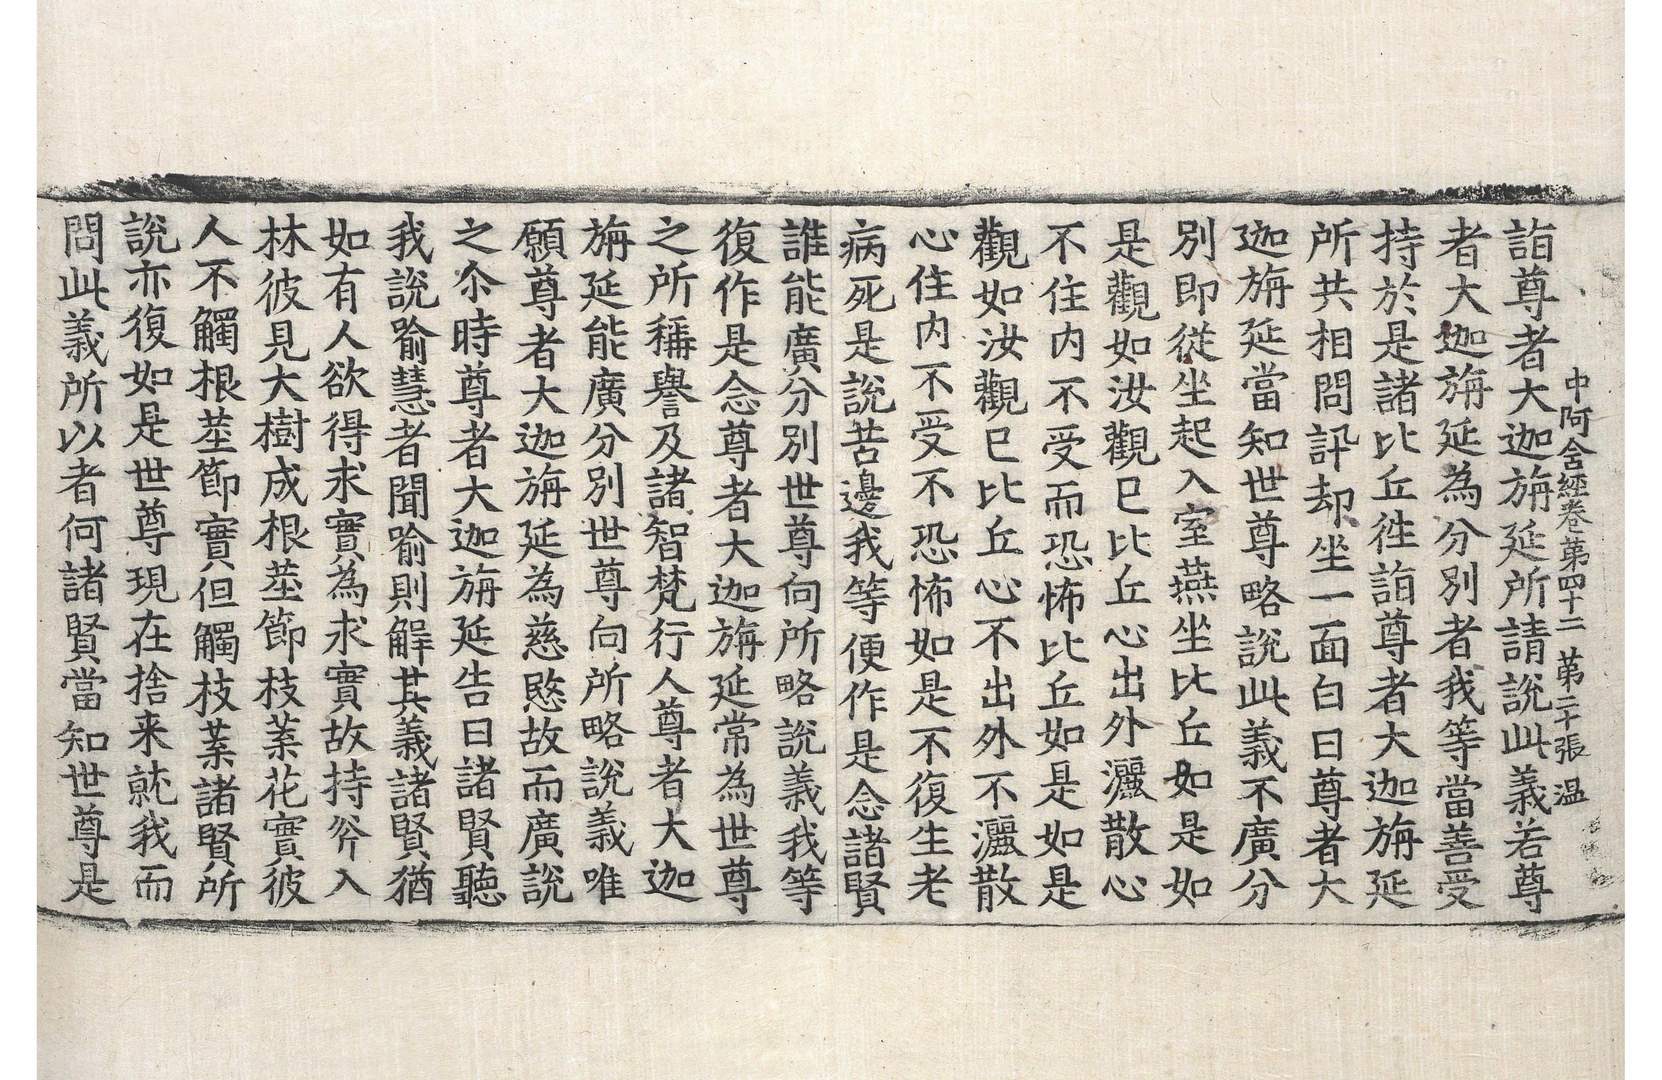 中阿含經卷第四十二 第二十張 温
詣尊者大迦旃延所請說此義若尊
者大迦旃延為分別者我等當善受
持於是諸比丘徃詣尊者大迦旃延
所共相問訊却坐一面白曰尊者大
迦旃延當知世尊略說此義不廣分
別即從坐起入室燕坐比丘如是如
是觀如汝觀已比丘心出外灑散心
不住内不受而恐怖比丘如是如是
觀如汝觀已比丘心不出外不灑散
心住内不受不恐怖如是不復生老
病死是說苦邊我等便作是念諸賢
誰能廣分別世尊向所略說義我等
復作是念尊者大迦旃延常為世尊
之所稱譽及諸智梵行人尊者大迦
旃延能廣分別世尊向所略說義唯
願尊者大迦旃延為慈愍故而廣說
之尒時尊者大迦旃延告曰諸賢聽
我說喻慧者聞喻則解其義諸賢猶
如有人欲得求實為求實故持斧入
林彼見大樹成根莖節枝葉花實彼
人不觸根莖節實但觸枝葉諸賢所
說亦復如是世尊現在捨来就我而
問此義所以者何諸賢當知世尊是